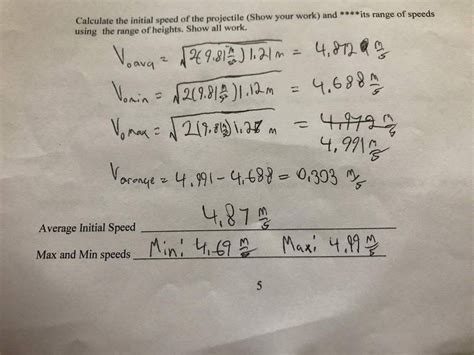 Calculate the initial speed of the projectile (Show your work) and ****its range of speeds
using the range of heights. Show all work.
V₀avg = √2(9.81 m/s²)1.21m = 4.872 m/s
V₀min = √2(9.81 m/s²)1.12m = 4.688 m/s
V₀max = √2(9.81 m/s²) m = 4.972 m/s
4.991 m/s
V₀range = 4.991 - 4.688 = 0.303 m/s
Average Initial Speed 4.87 m/s
Max and Min speeds Min: 4.69 m/s Max: 4.99 m/s
5